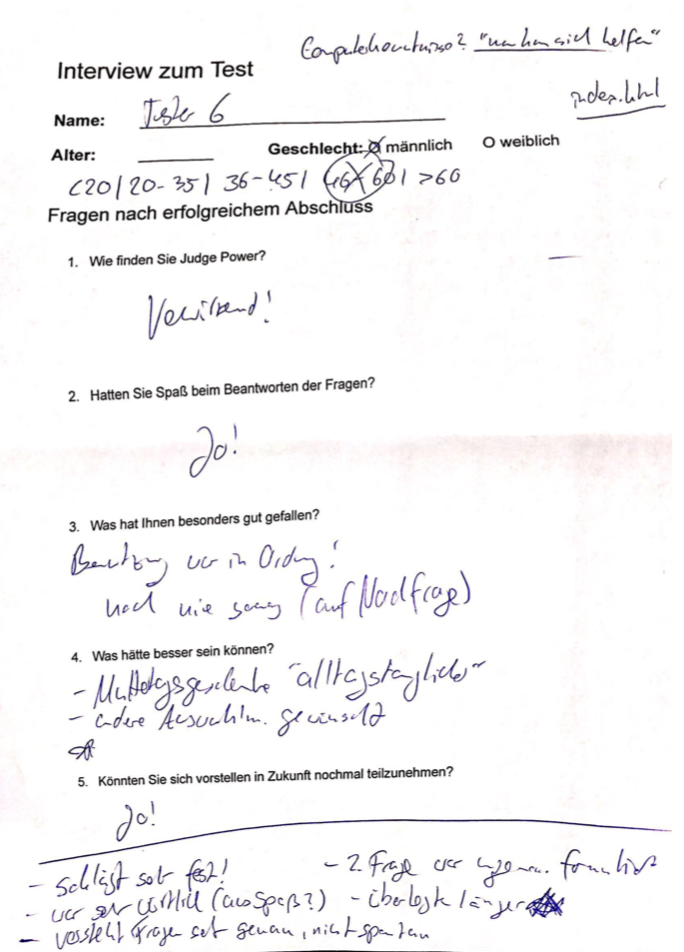 Computerkenntnisse? "man kann sich helfen"
Interview zum Test
index.html
Name: Tester 6
Alter: Geschlecht: O männlich O weiblich
<20 | 20-35 | 36-45 | 46-60 | >60
Fragen nach erfolgreichem Abschluss
1. Wie finden Sie Judge Power?
Verwirrend!
2. Hatten Sie Spaß beim Beantworten der Fragen?
Ja!
3. Was hat Ihnen besonders gut gefallen?
Benutzung war in Ordnung!
noch nie (auf Nachfrage)
4. Was hätte besser sein können?
- Muttertagsgeschenke "alltagstauglicher"
- andere Auswahlm. gewünscht
5. Könnten Sie sich vorstellen in Zukunft nochmal teilzunehmen?
Ja!
- schlägt sehr fest!
- 2. Frage war formuliert
- war sehr (aus Spaß?)
- überlegte länger
- versteht Fragen sehr genau, nicht spontan